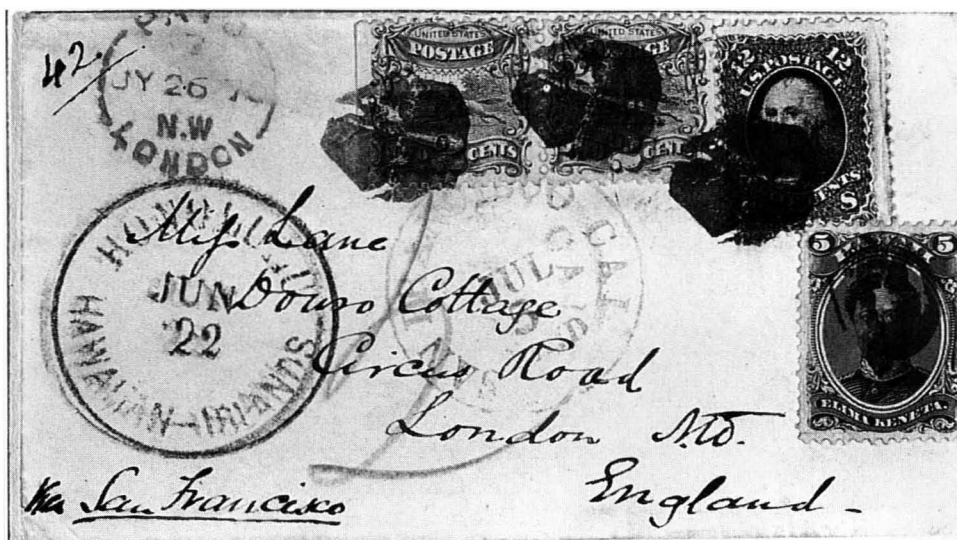 42
PAID
JY 26 7
N.W
LONDON
UNITED STATES
POSTAGE
CENTS
UNITED STATES
POSTAGE
CENTS
12 12
U.S. POSTAGE
CENTS
U S
5 5
ELIMA KENETA
HONOLULU
JUN
22
HAWAIIAN-ISLANDS
CAL
JUL
Miss Lane
Douro Cottage
Circus Road
London
England
Via San Francisco